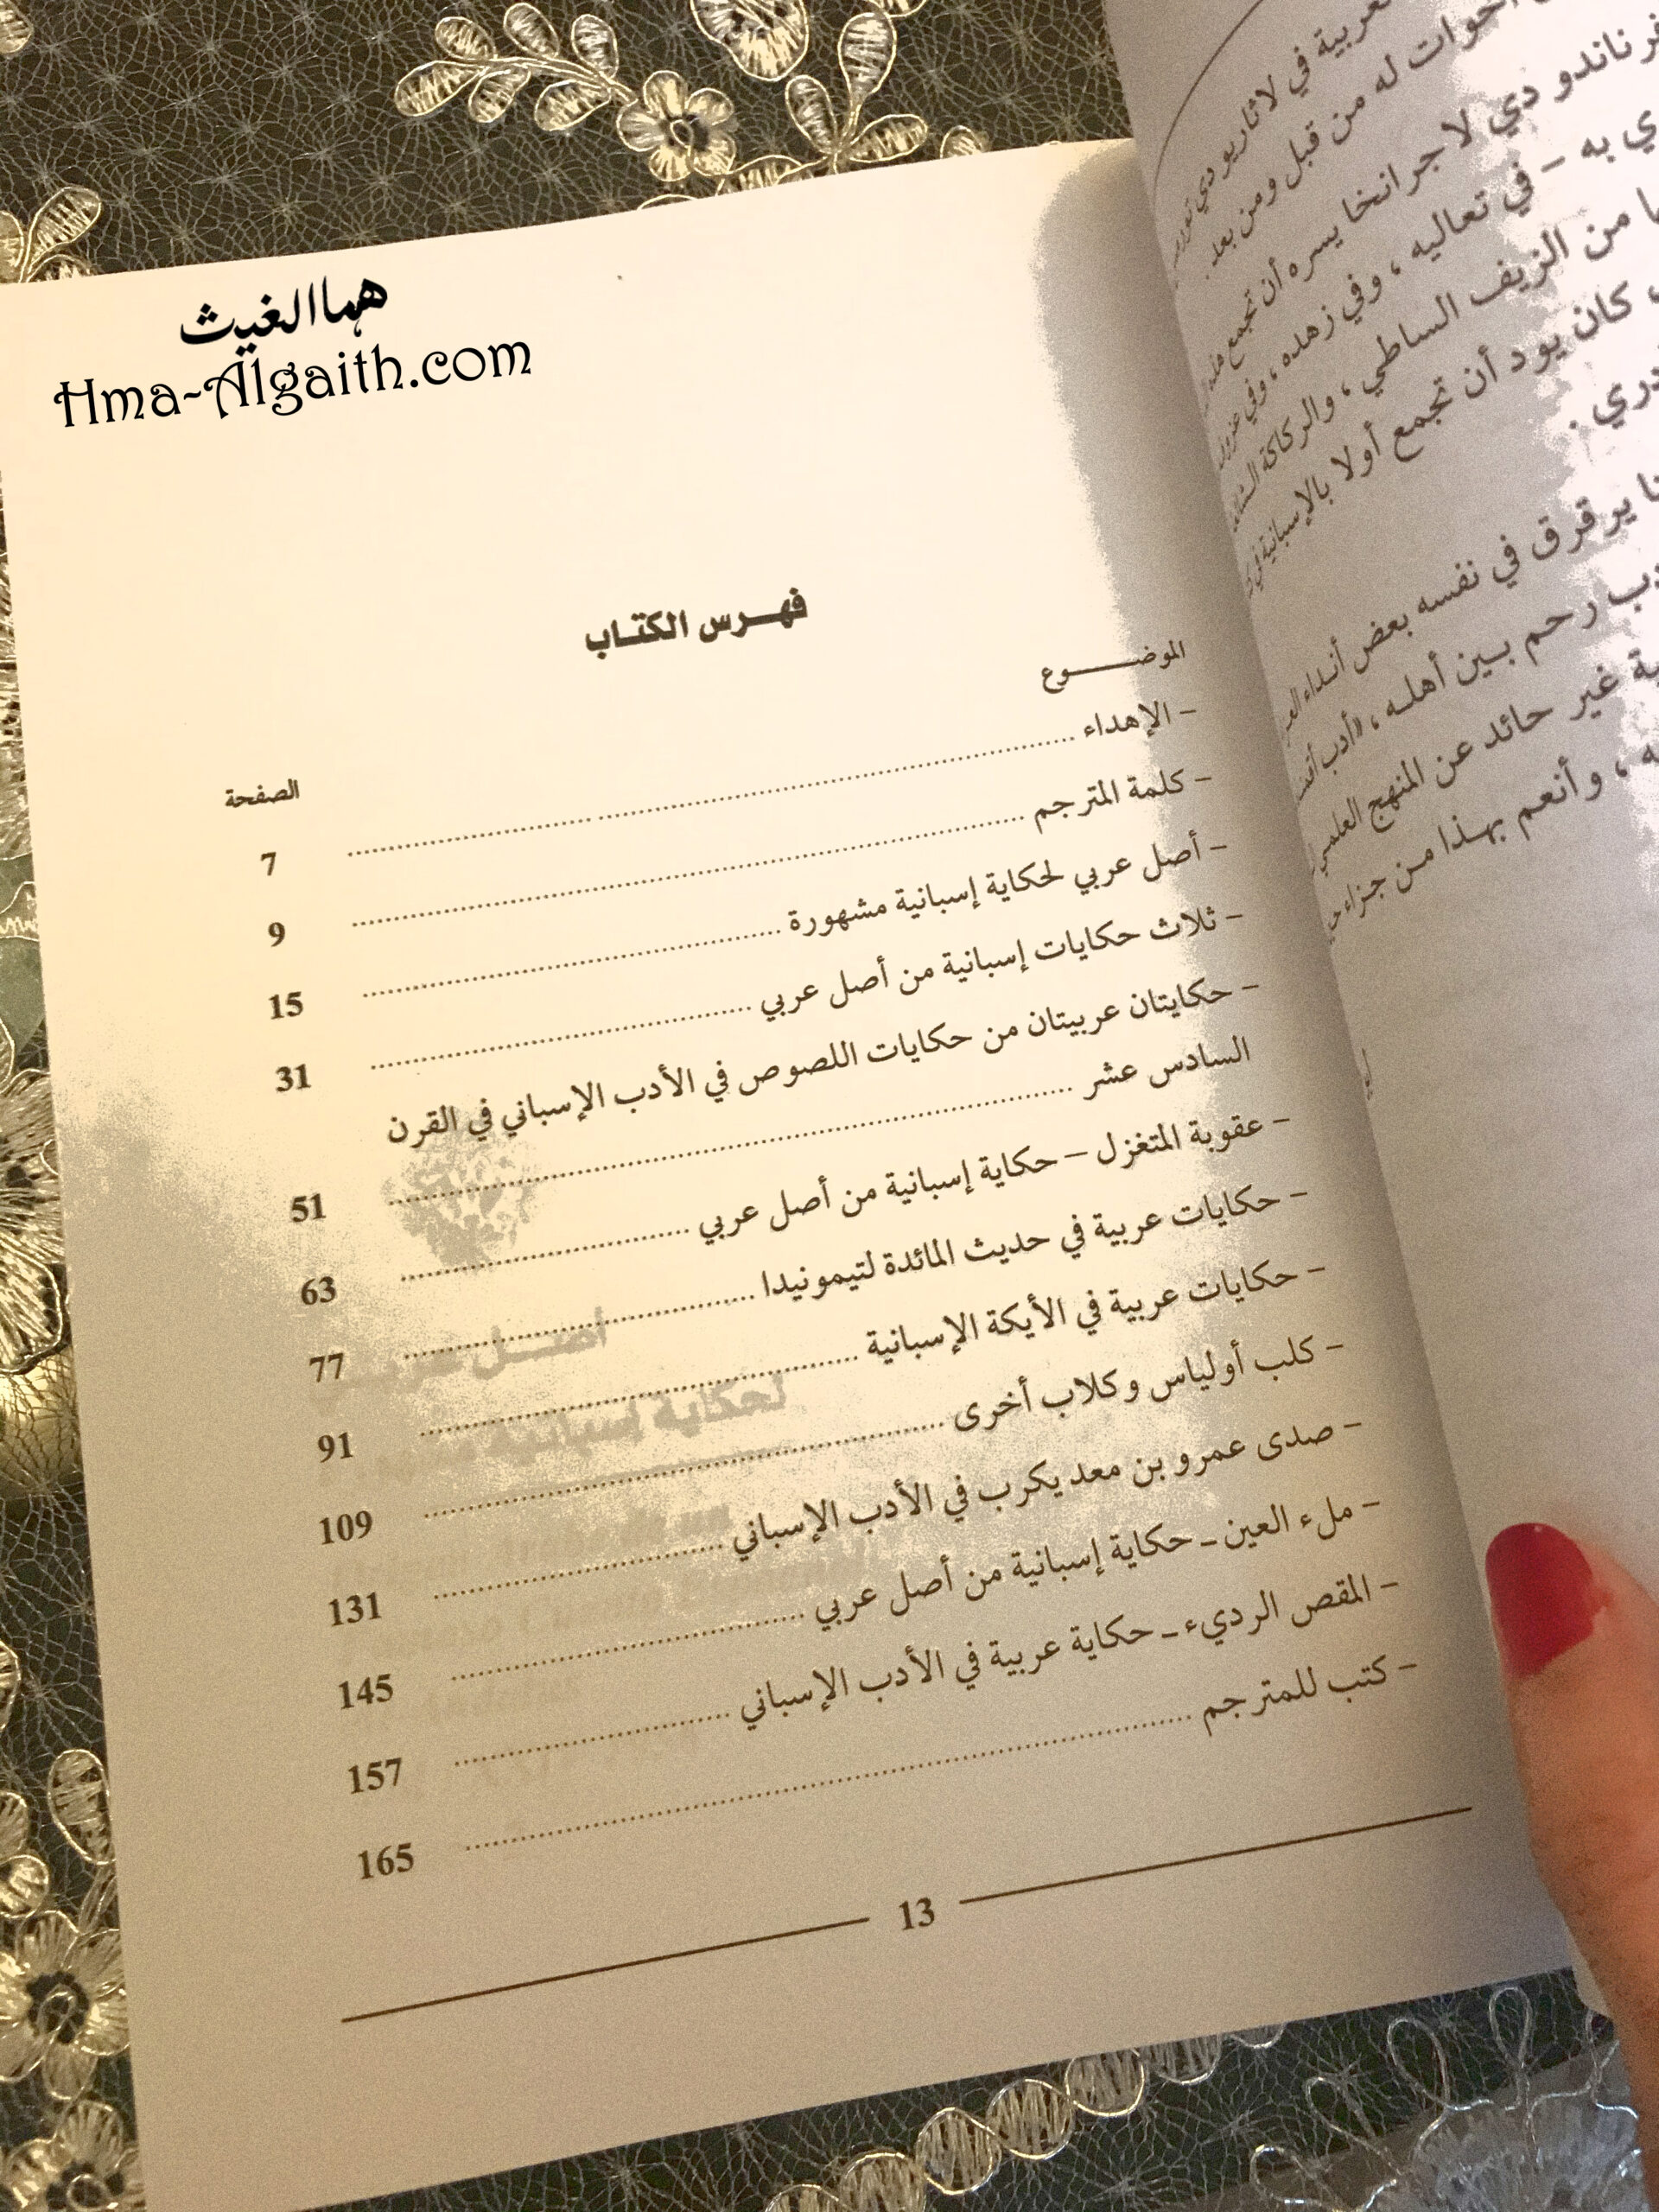 هما الغيث
Hma-Algaith.com
عربية في لاثاريو دي
أخوات له من قبل ومن بعد.
فرناندو دي لا جرانخا يسره أن تجمع هذه
ي به - في تعاليه ، وفي زهده ، وفي
من الزيف الساطي ، والركاكة
كان يود أن تجمع أولا بالإسبانية في
دري .
يرقرق في نفسه بعض أنداء
رحم بين أهله ، «أدب
غير حائد عن المنهج العلمي
ه ، وأنعم بهذا من جزاء
فهرس الكتاب
الموضوع
الصفحة
- الإهداء ........ 7
- كلمة المترجم ........ 9
- أصل عربي لحكاية إسبانية مشهورة ........ 15
- ثلاث حكايات إسبانية من أصل عربي ........ 31
- حكايتان عربيتان من حكايات اللصوص في الأدب الإسباني في القرن
السادس عشر ........ 51
- عقوبة المتغزل – حكاية إسبانية من أصل عربي ........ 63
- حكايات عربية في حديث المائدة لتيمونيدا ........ 77
- حكايات عربية في الأيكة الإسبانية ........ 91
- كلب أولياس وكلاب أخرى ........ 109
- صدى عمرو بن معديكرب في الأدب الإسباني ........ 131
- ملء العين – حكاية إسبانية من أصل عربي ........ 145
- المقص الرديء – حكاية عربية في الأدب الإسباني ........ 157
- كتب للمترجم ........ 165
13